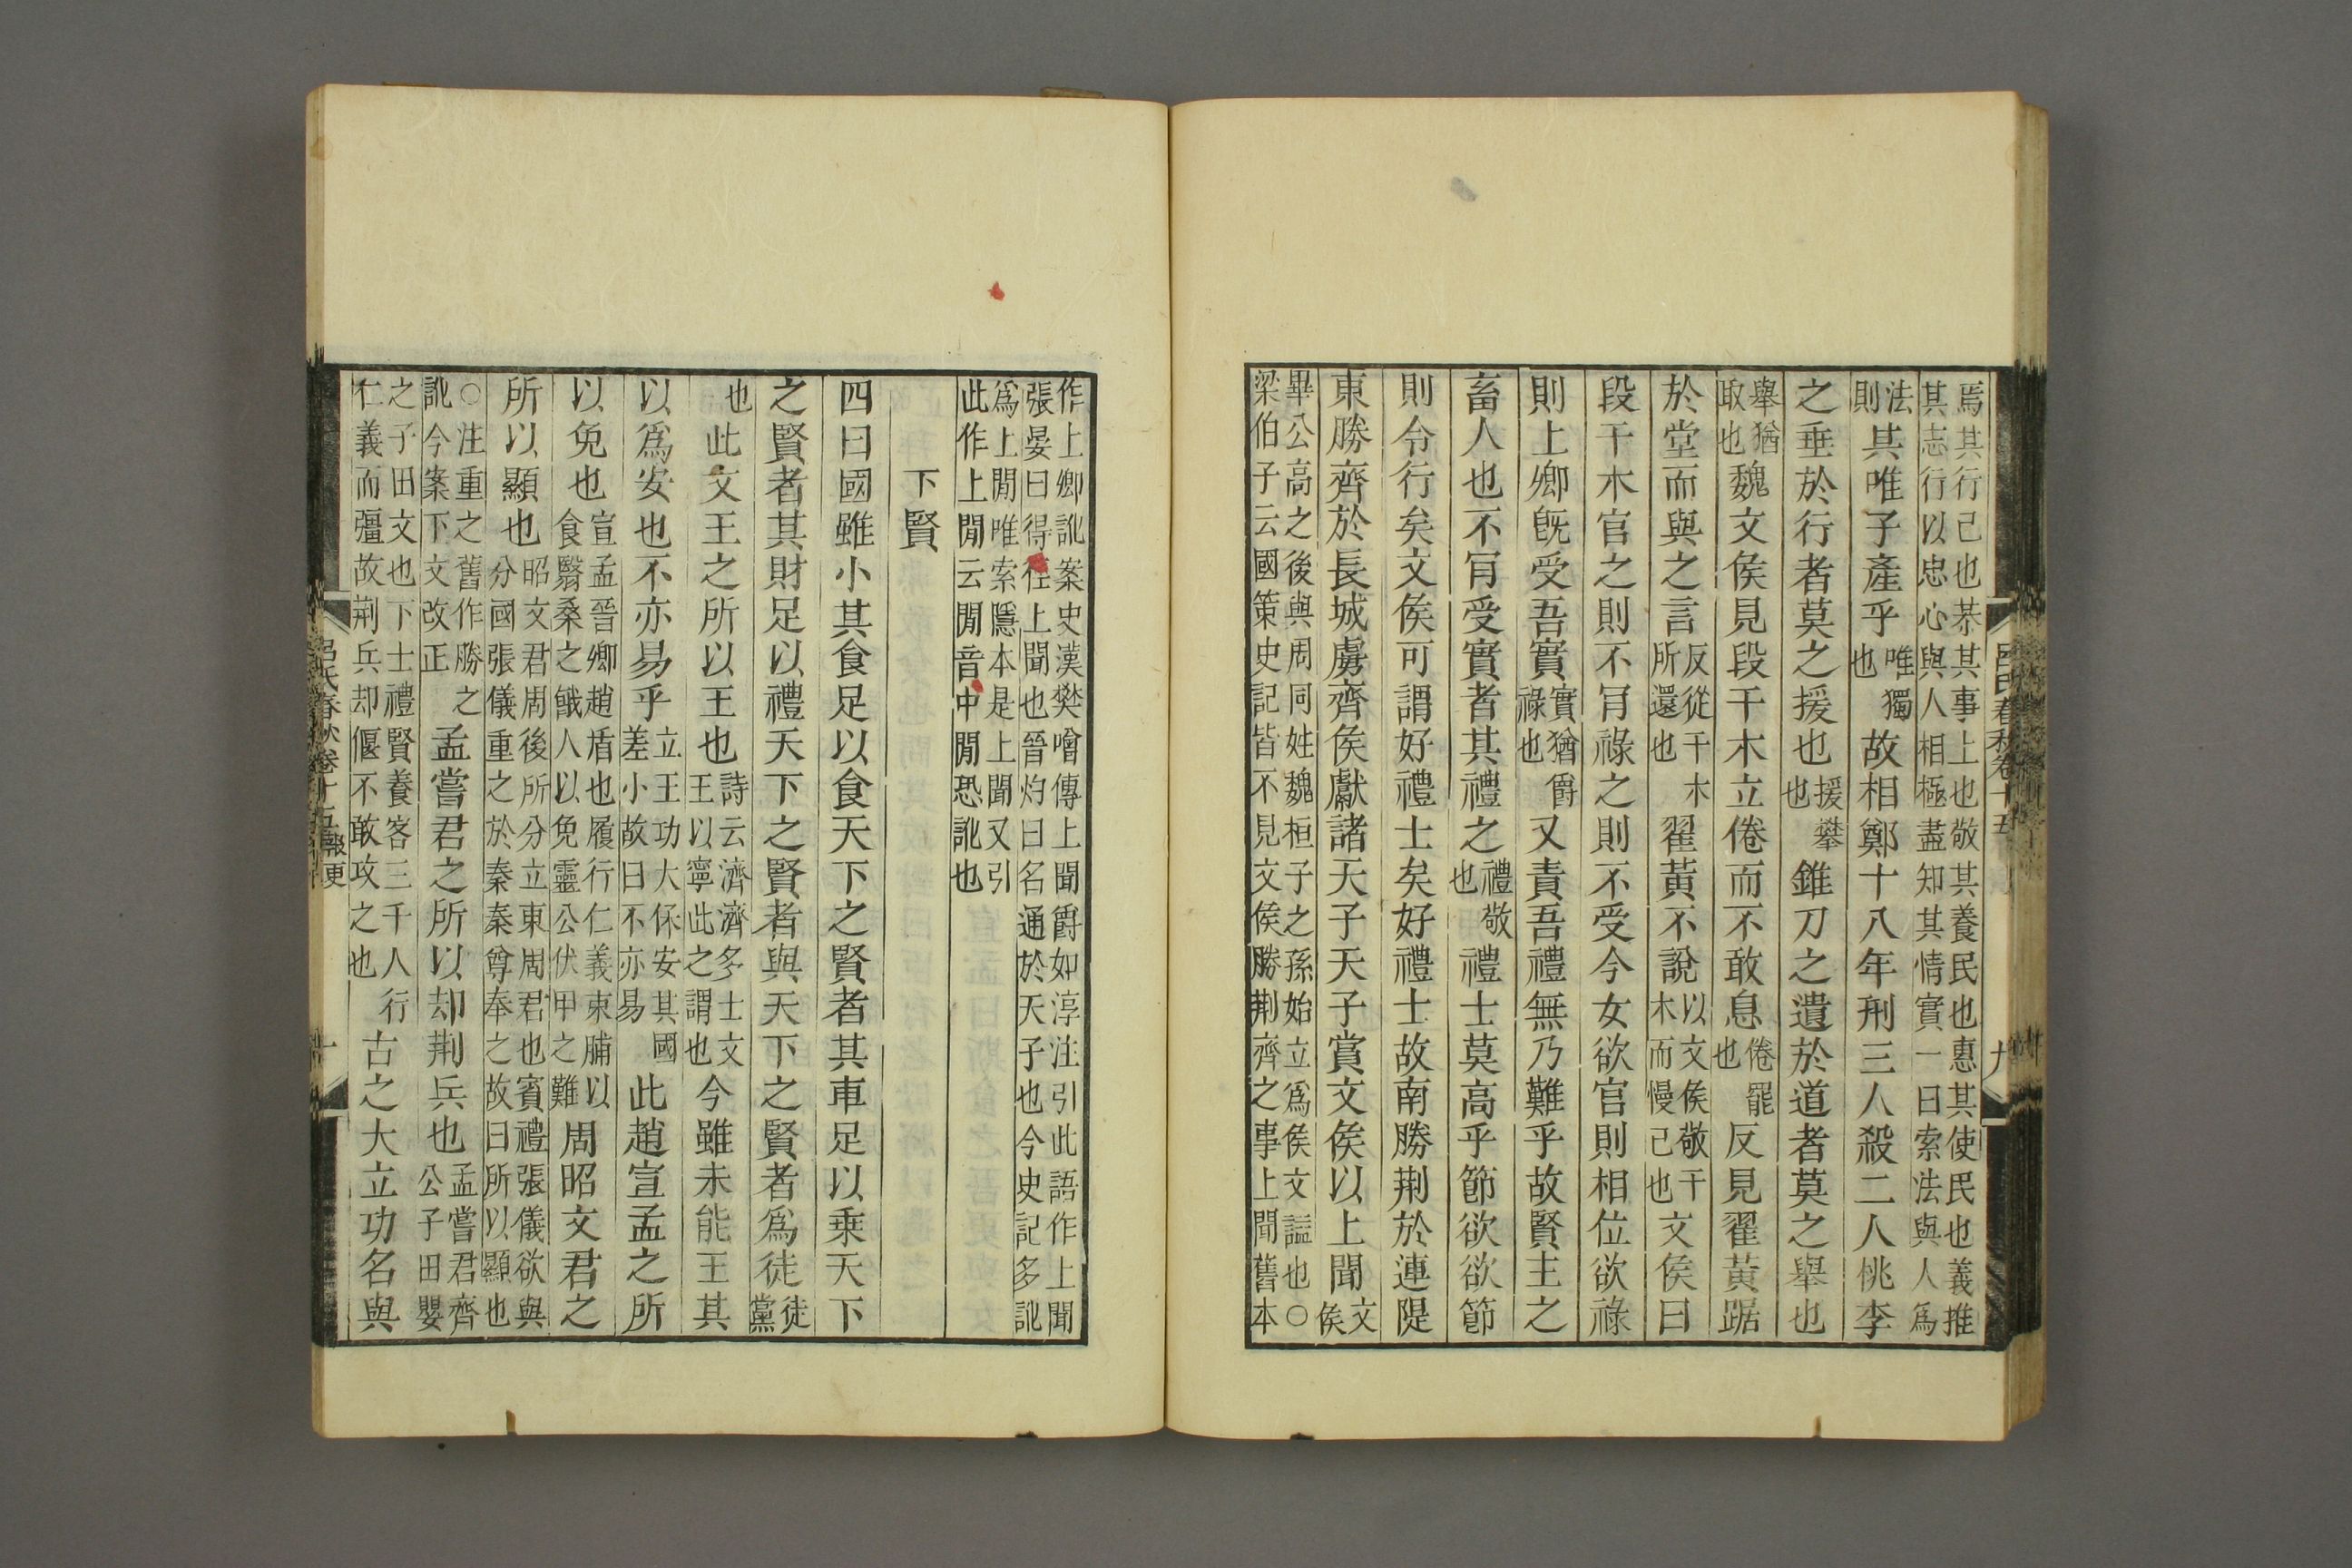 焉其行己也恭其事上也敬其養民也惠其使民也義推
其志行以忠心與人相極盡知其情實一曰索法與人爲
法則其唯子產乎唯獨也故相鄭十八年刑三人殺二人桃李
之垂於行者莫之援也援攀也錐刀之遺於道者莫之舉也
舉猶取也魏文侯見段干木立倦而不敢息倦罷也反見翟黃踞
於堂而與之言反從干木所還也翟黃不說以文侯敬干木而慢己也文侯曰
段干木官之則不肎祿之則不受今女欲官則相位欲祿
則上卿旣受吾實實猶爵祿也又責吾禮無乃難乎故賢主之
畜人也不肎受實者其禮之禮敬也禮士莫高乎節欲欲節
則令行矣文侯可謂好禮士矣好禮士故南勝荆於連隄
東勝齊於長城虜齊侯獻諸天子天子賞文侯以上聞文侯
畢公高之後與周同姓魏桓子之孫始立爲侯文謚也○
梁伯子云國策史記皆不見文侯勝荆齊之事上聞舊本
呂氏春秋卷十五
九
作上卿訛案史漢樊噲傳上聞爵如淳注引此語作上聞
張晏曰得徑上聞也晉灼曰名通於天子也今史記多訛
爲上閒唯索隱本是上聞又引
此作上閒云閒音中閒恐訛也
下賢
四曰國雖小其食足以食天下之賢者其車足以乗天下
之賢者其財足以禮天下之賢者與天下之賢者爲徒徒黨
也此文王之所以王也詩云濟濟多士文王以寧此之謂也今雖未能王其
以爲安也不亦易乎立王功大保安其國差小故曰不亦易此趙宣孟之所
以免也宣孟晉卿趙盾也履行仁義束脯以食翳桑之餓人以免靈公伏甲之難周昭文君之
所以顯也昭文君周後所分立東周君也賓禮張儀欲與分國張儀重之於秦秦尊奉之故曰所以顯也
○注重之舊作勝之訛今案下文改正孟嘗君之所以却荆兵也孟嘗君齊公子田嬰
之子田文也下士禮賢養客三千人行仁義而彊故荆兵却偃不敢攻之也古之大立功名與
呂氏春秋卷十五報更
十